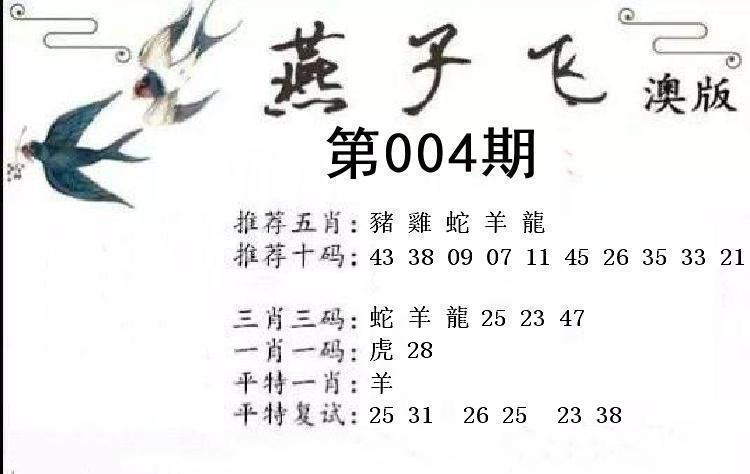 燕子飞 澳版
第004期
推荐五肖：豬 雞 蛇 羊 龍
推荐十码：43 38 09 07 11 45 26 35 33 21
三肖三码：蛇 羊 龍 25 23 47
一肖一码：虎 28
平特一肖：羊
平特复试：25 31 26 25 23 38